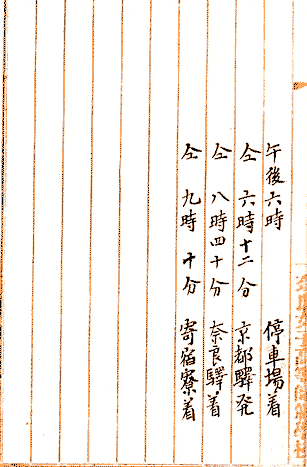 午後六時 停車場着
仝 六時十二分 京都驛発
仝 八時四十分 奈良驛着
仝 九時十分 寄宿寮着